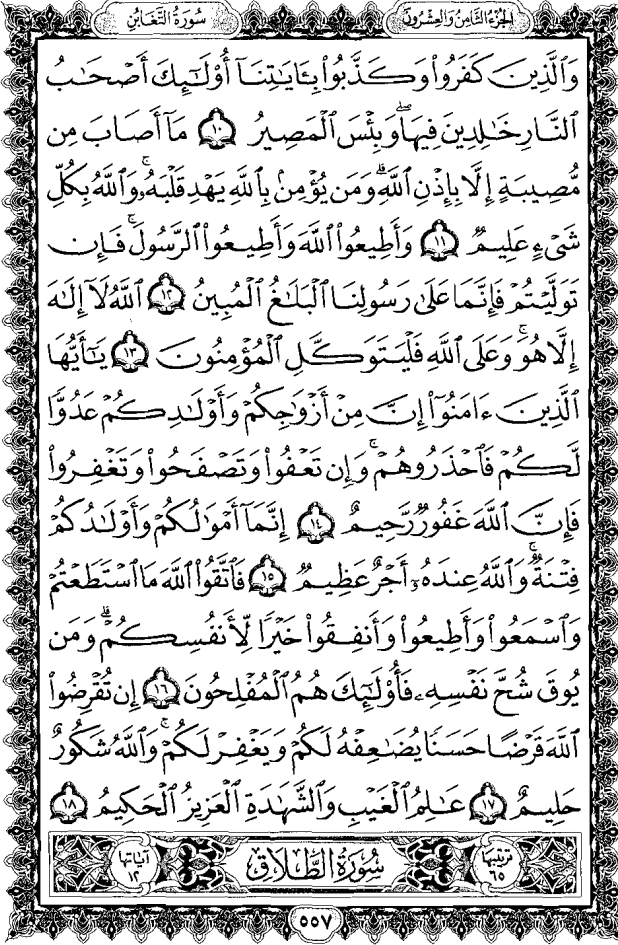 الجزء الثامن والعشرون
سورة التغابن
وَٱلَّذِينَ كَفَرُوا۟ وَكَذَّبُوا۟ بِـَٔايَٰتِنَآ أُو۟لَٰٓئِكَ أَصْحَٰبُ
ٱلنَّارِ خَٰلِدِينَ فِيهَا ۖ وَبِئْسَ ٱلْمَصِيرُ ١٠ مَآ أَصَابَ مِن
مُّصِيبَةٍ إِلَّا بِإِذْنِ ٱللَّهِ ۗ وَمَن يُؤْمِنۢ بِٱللَّهِ يَهْدِ قَلْبَهُۥ ۚ وَٱللَّهُ بِكُلِّ
شَىْءٍ عَلِيمٌ ١١ وَأَطِيعُوا۟ ٱللَّهَ وَأَطِيعُوا۟ ٱلرَّسُولَ ۚ فَإِن
تَوَلَّيْتُمْ فَإِنَّمَا عَلَىٰ رَسُولِنَا ٱلْبَلَٰغُ ٱلْمُبِينُ ١٢ ٱللَّهُ لَآ إِلَٰهَ
إِلَّا هُوَ ۚ وَعَلَى ٱللَّهِ فَلْيَتَوَكَّلِ ٱلْمُؤْمِنُونَ ١٣ يَٰٓأَيُّهَا
ٱلَّذِينَ ءَامَنُوٓا۟ إِنَّ مِنْ أَزْوَٰجِكُمْ وَأَوْلَٰدِكُمْ عَدُوًّا
لَّكُمْ فَٱحْذَرُوهُمْ ۚ وَإِن تَعْفُوا۟ وَتَصْفَحُوا۟ وَتَغْفِرُوا۟
فَإِنَّ ٱللَّهَ غَفُورٌ رَّحِيمٌ ١٤ إِنَّمَآ أَمْوَٰلُكُمْ وَأَوْلَٰدُكُمْ
فِتْنَةٌ ۚ وَٱللَّهُ عِندَهُۥٓ أَجْرٌ عَظِيمٌ ١٥ فَٱتَّقُوا۟ ٱللَّهَ مَا ٱسْتَطَعْتُمْ
وَٱسْمَعُوا۟ وَأَطِيعُوا۟ وَأَنفِقُوا۟ خَيْرًا لِّأَنفُسِكُمْ ۗ وَمَن
يُوقَ شُحَّ نَفْسِهِۦ فَأُو۟لَٰٓئِكَ هُمُ ٱلْمُفْلِحُونَ ١٦ إِن تُقْرِضُوا۟
ٱللَّهَ قَرْضًا حَسَنًا يُضَٰعِفْهُ لَكُمْ وَيَغْفِرْ لَكُمْ ۚ وَٱللَّهُ شَكُورٌ
حَلِيمٌ ١٧ عَٰلِمُ ٱلْغَيْبِ وَٱلشَّهَٰدَةِ ٱلْعَزِيزُ ٱلْحَكِيمُ ١٨
ترتيبها ٦٥ سورة الطلاق آياتها ١٢
٥٥٧